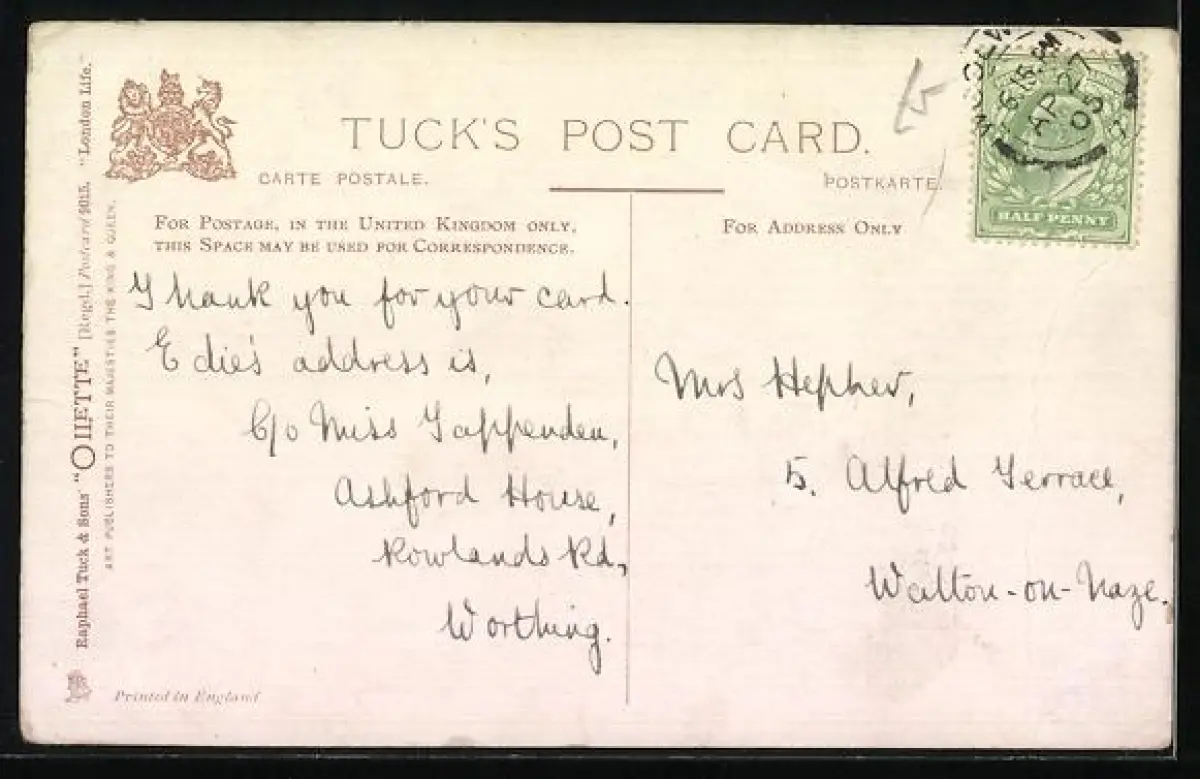 TUCK'S POST CARD.
CARTE POSTALE.
POSTKARTE.
FOR POSTAGE, IN THE UNITED KINGDOM ONLY,
THIS SPACE MAY BE USED FOR CORRESPONDENCE.
FOR ADDRESS ONLY
Thank you for your card.
Edie's address is,
C/o Miss Tappenden,
Ashford House,
Rowlands Rd,
Worthing.
Mrs Hepher,
5. Alfred Terrace,
Walton-on-Naze.
HALF PENNY
6.15 PM
AP 27
05
Raphael Tuck & Sons' "OILETTE" [Regd.] Postcard 9015. "London Life."
ART PUBLISHERS TO THEIR MAJESTIES THE KING & QUEEN.
Printed in England